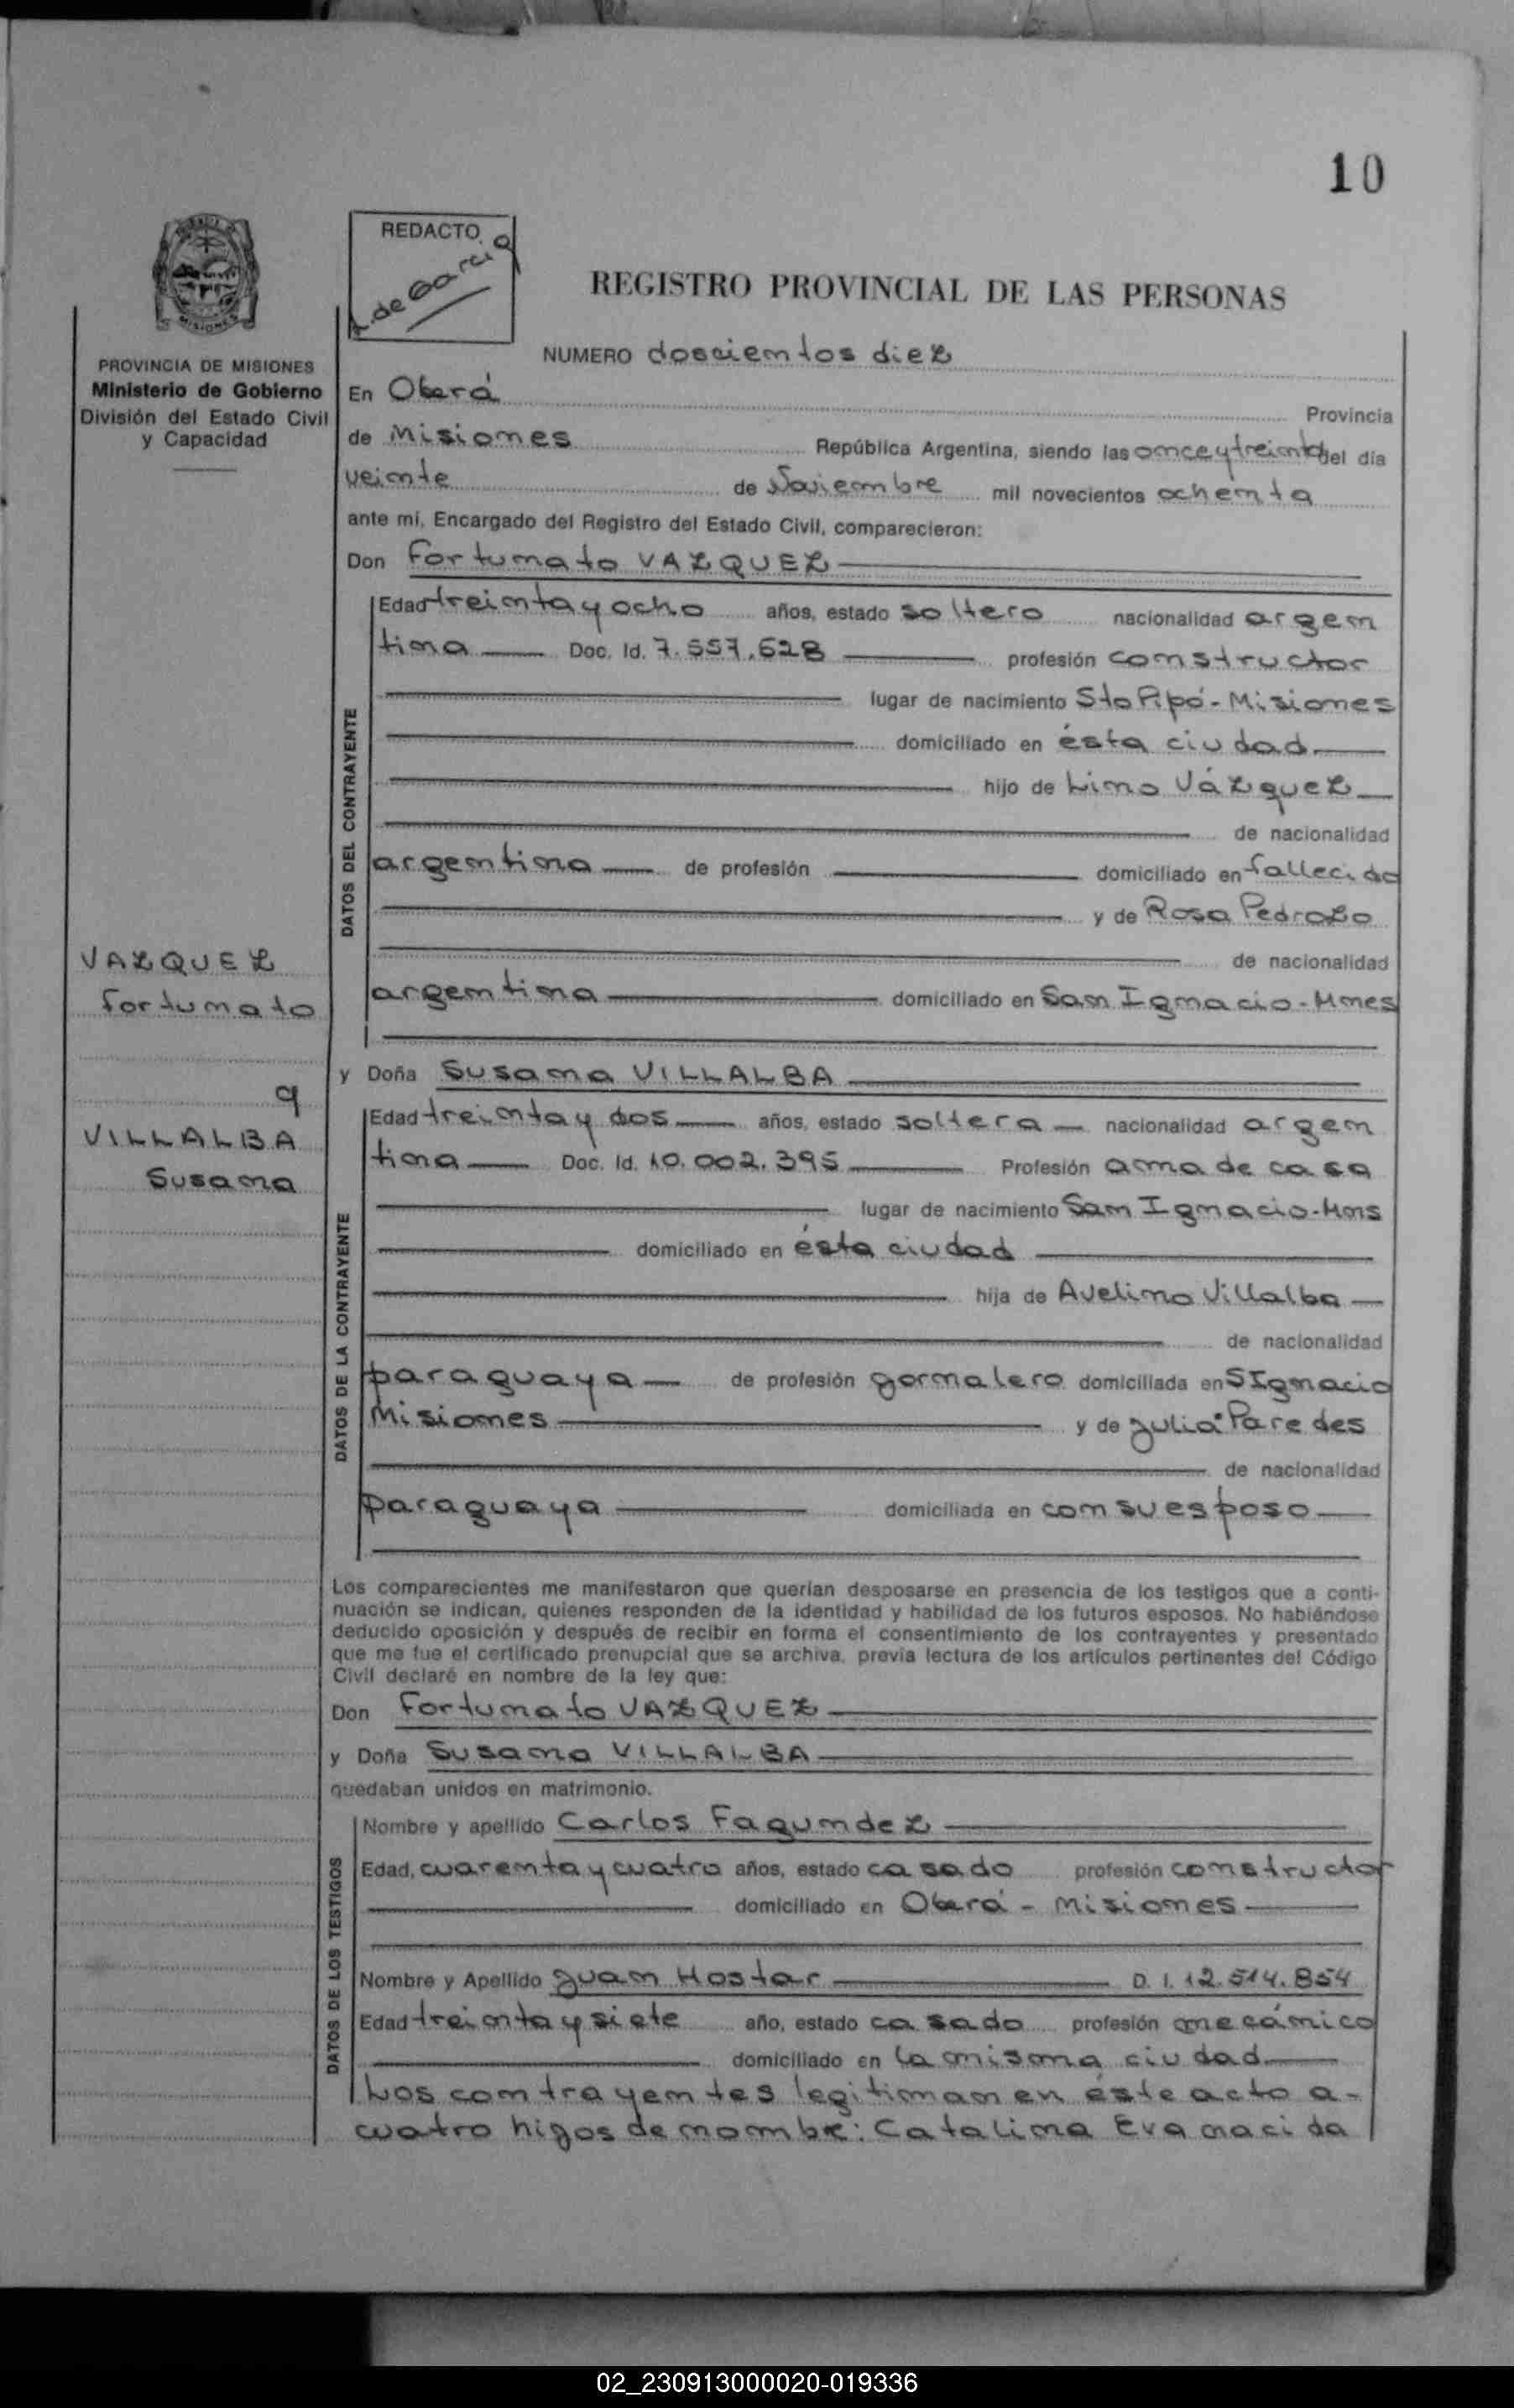 10
REDACTO
de Garcia
REGISTRO PROVINCIAL DE LAS PERSONAS
PROVINCIA DE MISIONES
Ministerio de Gobierno
División del Estado Civil
y Capacidad
NUMERO doscientos diez
En Oberá Provincia
de Misiones República Argentina, siendo las once y treinta del día
veinte de Noviembre mil novecientos ochenta
ante mí, Encargado del Registro del Estado Civil, comparecieron:
Don Fortunato VAZQUEZ
DATOS DEL CONTRAYENTE
Edad treinta y ocho años, estado soltero nacionalidad argen
tina Doc. Id. 7.557.628 profesión constructor
lugar de nacimiento Sto Pipó - Misiones
domiciliado en ésta ciudad
hijo de Lino Vázquez
de nacionalidad
argentina de profesión domiciliado en fallecido
y de Rosa Pedrozo
de nacionalidad
argentina domiciliado en San Ignacio - Mnes
VAZQUEZ
Fortunato
y
VILLALBA
Susana
y Doña Susana VILLALBA
DATOS DE LA CONTRAYENTE
Edad treinta y dos años, estado soltera nacionalidad argen
tina Doc. Id. 10.002.395 Profesión ama de casa
lugar de nacimiento San Ignacio - Mns
domiciliado en ésta ciudad
hija de Avelino Villalba
de nacionalidad
paraguaya de profesión jornalero domiciliada en S Ignacio
Misiones y de Julia Paredes
de nacionalidad
paraguaya domiciliada en con su esposo
Los comparecientes me manifestaron que querían desposarse en presencia de los testigos que a conti-
nuación se indican, quienes responden de la identidad y habilidad de los futuros esposos. No habiéndose
deducido oposición y después de recibir en forma el consentimiento de los contrayentes y presentado
que me fue el certificado prenupcial que se archiva, previa lectura de los artículos pertinentes del Código
Civil declaré en nombre de la ley que:
Don Fortunato VAZQUEZ
y Doña Susana VILLALBA
quedaban unidos en matrimonio.
DATOS DE LOS TESTIGOS
Nombre y apellido Carlos Fagundez
Edad, cuarenta y cuatro años, estado casado profesión constructor
domiciliado en Oberá - Misiones
Nombre y Apellido Juan Hostar D. I. 12.514.854
Edad treinta y siete año, estado casado profesión mecánico
domiciliado en la misma ciudad
Los contrayentes legitiman en éste acto a-
cuatro hijos de nombre: Catalina Eva nacida
02_230913000020-019336